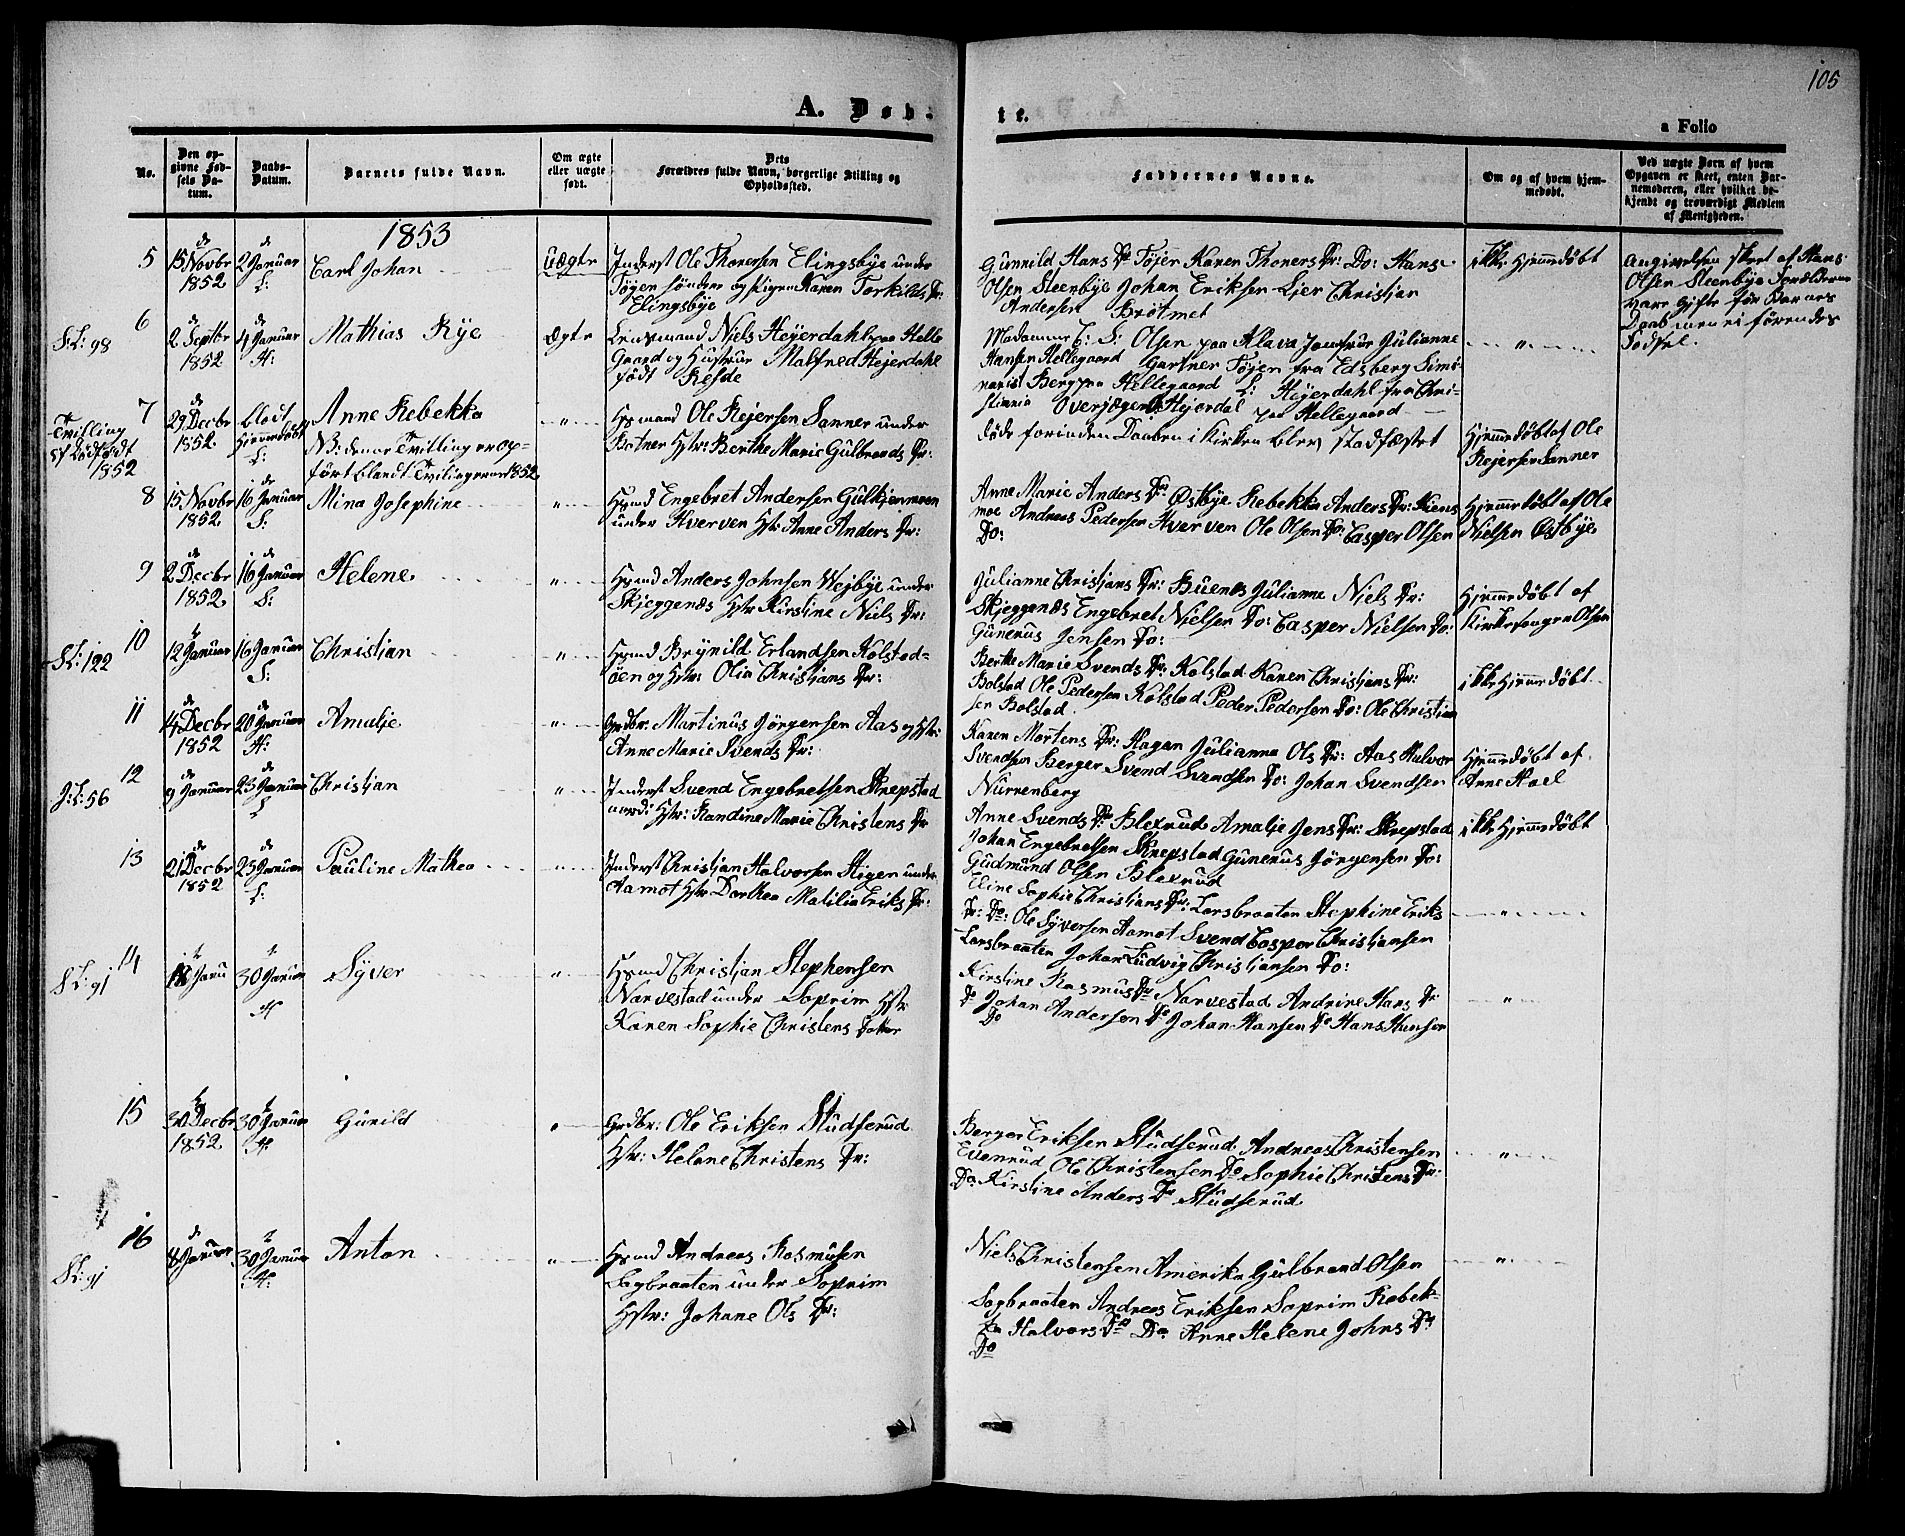 105
A. Døb-
te.
a Folio
No.
Den op-
givne Fød-
sels Da-
tum.
Daabs-
Datum.
Barnets fulde Navn.
Om ægte
eller uægte
født.
Dets
Forældres fulde Navn, borgerlige Stilling og
Opholdssted.
Faddernes Navne.
Om og af hvem hjem-
medøbt.
Ved uægte Born af hvem
Opgaven er skeet, enten Bar-
nemoderen, eller hvilket be-
kjendt og troværdigt Medlem
af Menigheden.
1853
5
de
15 Novbr
1852
de
2 Januar
Carl Johan
Uægte
Inderst Ole Thoresen Elingsbye under
Tøyen søndre og Pigen Karen Torkilds Dr:
Elingsbye
Gunnild Hans Dr Tøjen Karen Thoners Dr: Do: Hans
Olsen Steenbye Johan Eriksen Lier Christian
Andersen Brotmet
ikke hjemmedøbt
Angivelsen skeet af Hans
Olsen Steenbye Forældrene
vare gifte før Barnets
Daab men ei før endes
Fødsel.
6
S.L: 98
de
2 Septbr
1852
de
4 Januar
H:
Mathias Rye
Ægte
Lensmand Niels Heyerdahl paa Helle
Gaard og Hustrue Malfred Hejerdahl
født Resde
Madamme C: S: Olsen paa Klava Jomfrue Julianne
Hansen Hellegaard Gartner Tøjen fra Edsberg Simi-
narist Berg paa Hellegaard L: Heyerdahl fra Chri-
stiania Overjægen Hejerdal paa Hellegaard
7
Tvilling
1852
de
29 Decbr
1852
blot
hjemmedøbt
Anne Rebekka
NB: denne Tvilling er op-
ført blandt Tvillingerne 1852
Hsmand Ole Rejersen Sanner under
Botner Hstr: Berthe Marie Gulbrands Dr:
døde forinden Daaben i Kirken blev stadfæstet
Hjemmedøbt af Ole
Rejersen Sanner
8
15 Novbr
1852
de
16 Januar
S:
Mina Josephine
Hsmd Engebret Andersen Gulkjernmoen
under Hverven Hstr: Anne Anders Dr:
Anne Marie Anders Dr Østbye Rebekka Anders Dr: Kiens
moe Andreas Pedersen Hverven Ole Olsen Do: Casper Olsen
Do:
Hjemmedøbt af Ole
Nielsen Østbye
9
de
2 Decbr
1852
de
16 Januar
S:
Helene
Hsmd Anders Johnsen Wejbye under
Skjeggenæs Hstr Kirstine Niels Dr:
Julianne Christians Dr: Buenes Julianne Niels Dr:
Skjeggenæs Engebret Nielsen Do: Casper Nielsen Do:
Gunerus Jensen Do:
Hjemmedøbt af
Kirkesanger Olsen
10
S.L: 122
12 Januar
16 Januar
S:
Christian
Hsmd Brynild Erlandsen Kolstad-
øen og Hstr: Olia Christians Dr:
Berthe Marie Svends Dr: Kolstad Karen Christians Dr:
Bolstad Ole Pedersen Kolstad Peder Pedersen Do: Ole Christian
sen Bolstad
ikke hjemmedøbt
11
de
4 Decbr
1852
de
20 Januar
H:
Amalie
Grdbr: Martinus Jørgensen Aas og Hstr:
Anne Marie Svends Dr:
Karen Mortens Dr: Hagan Julianna Ols Dr: Aas Halvor
Svendsen Berger Svend Svendsen Do: Johan Svendsen
Nurrenberg
Hjemmedøbt af
Anne Hoel
12
J:L: 56
de
9 Januar
de
23 Januar
Christian
Inderst Svend Engebretsen Skrepstad
nord: Hstr: Randine Marie Christens Dr
Anne Svends Dr Blexrud Amalie Jens Dr: Skrepstad
Johan Engebretsen Skrepstad Gunerus Jørgensen Do:
Gudmund Olsen Blexrud
ikke hjemmedøbt
13
de
21 Decbr
1852
de
23 Januar
Pauline Mathea
Inderst Christian Halvorsen Stigen under
Aamot Hstr Dorthea Matilia Eriks Dr:
Eline Sophie Christians Dr: Larsbraaten Stephine Eriks
Dr: Do: Ole Syversen Aamot Svend Casper Christiansen
Larsbraaten Johan Ludvig Christiansen Do:
14
S.L: 91
18 Janu
30 Januar
H
Syver
Hsmd Christian Stephensen
Narvestad under Soprim Hstr
Karen Sophie Christens Datter
Kirstine Rasmus Dr Narvestad Andrine Hans Dr
Do Johan Andersen Do Johan Hansen Do Hans Hansen
Do
15
30 Decbr
1852
30 Januar
H
Gunild
Grdbr: Ole Eriksen Studserud
Hstr: Helene Christens Dr:
Berger Eriksen Studserud Andreas Christensen
Evenrud Ole Christensen Do Sophie Christens Dr:
Do Kirstine Anders Dr Studserud
16
S.L: 91
de
8 Januar
30 Januar
H:
Anton
Hsmd Andreas Rasmusen
Sagbraaten under Soprim
Hstr: Johane Ols Dr:
Niels Christensen Amerika Gulbrand Olsen
Sagbraaten Andreas Eriksen Soprim Rebek-
ka Halvors Dr Do Anne Helene Johns Dr
Do